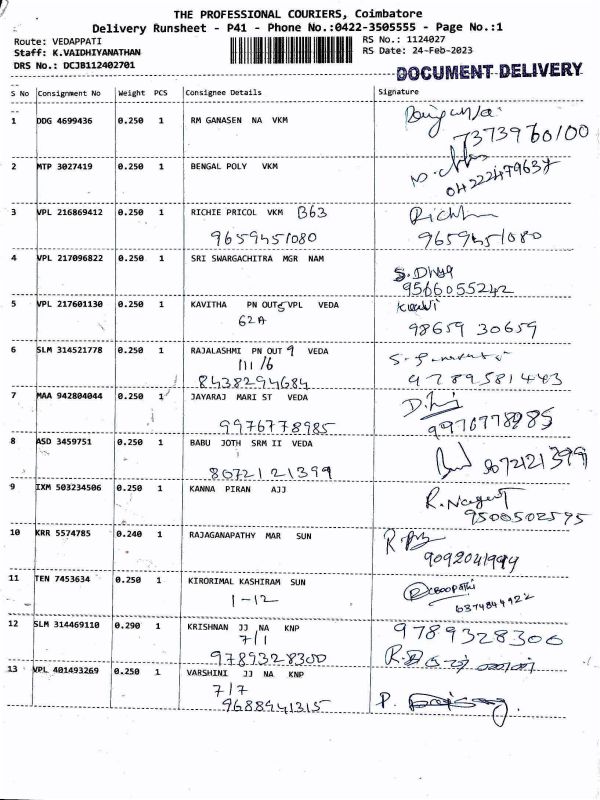 THE PROFESSIONAL COURIERS, Coimbatore
Delivery Runsheet - P41 - Phone No.:0422-3505555 - Page No.:1
Route: VEDAPPATI RS No.: 1124027
Staff: K.VAIDHIYANATHAN RS Date: 24-Feb-2023
DRS No.: DCJB112402701
DOCUMENT DELIVERY
S No Consignment No Weight PCS Consignee Details Signature
1 DDG 4699436 0.250 1 RM GANASEN NA VKM
7373960100
2 MTP 3027419 0.250 1 BENGAL POLY VKM
04222479637
3 VPL 216869412 0.250 1 RICHIE PRICOL VKM B63
9659451080 9659451080
4 VPL 217096822 0.250 1 SRI SWARGACHITRA MGR NAM
S. Dhya
9566055242
5 VPL 217601130 0.250 1 KAVITHA PN OUT5 VPL VEDA
62A 98659 30659
6 SLM 314521778 0.250 1 RAJALASHMI PN OUT 9 VEDA
111/6
8438294684 9789581443
7 MAA 942804044 0.250 1 JAYARAJ MARI ST VEDA
9976778985 9976778985
8 ASD 3459751 0.250 1 BABU JOTH SRM II VEDA
8072121399 8072121399
9 IXM 503234506 0.250 1 KANNA PIRAN AJJ
R. Nagest
9500502595
10 KRR 5574785 0.240 1 RAJAGANAPATHY MAR SUN
9092041994
11 TEN 7453634 0.250 1 KIRORIMAL KASHIRAM SUN
1-12 Boopathi
6374844922
12 SLM 314469110 0.290 1 KRISHNAN JJ NA KNP
7/1 9789328300
9789328300
13 VPL 401493269 0.250 1 VARSHINI JJ NA KNP
7/7
9688941315